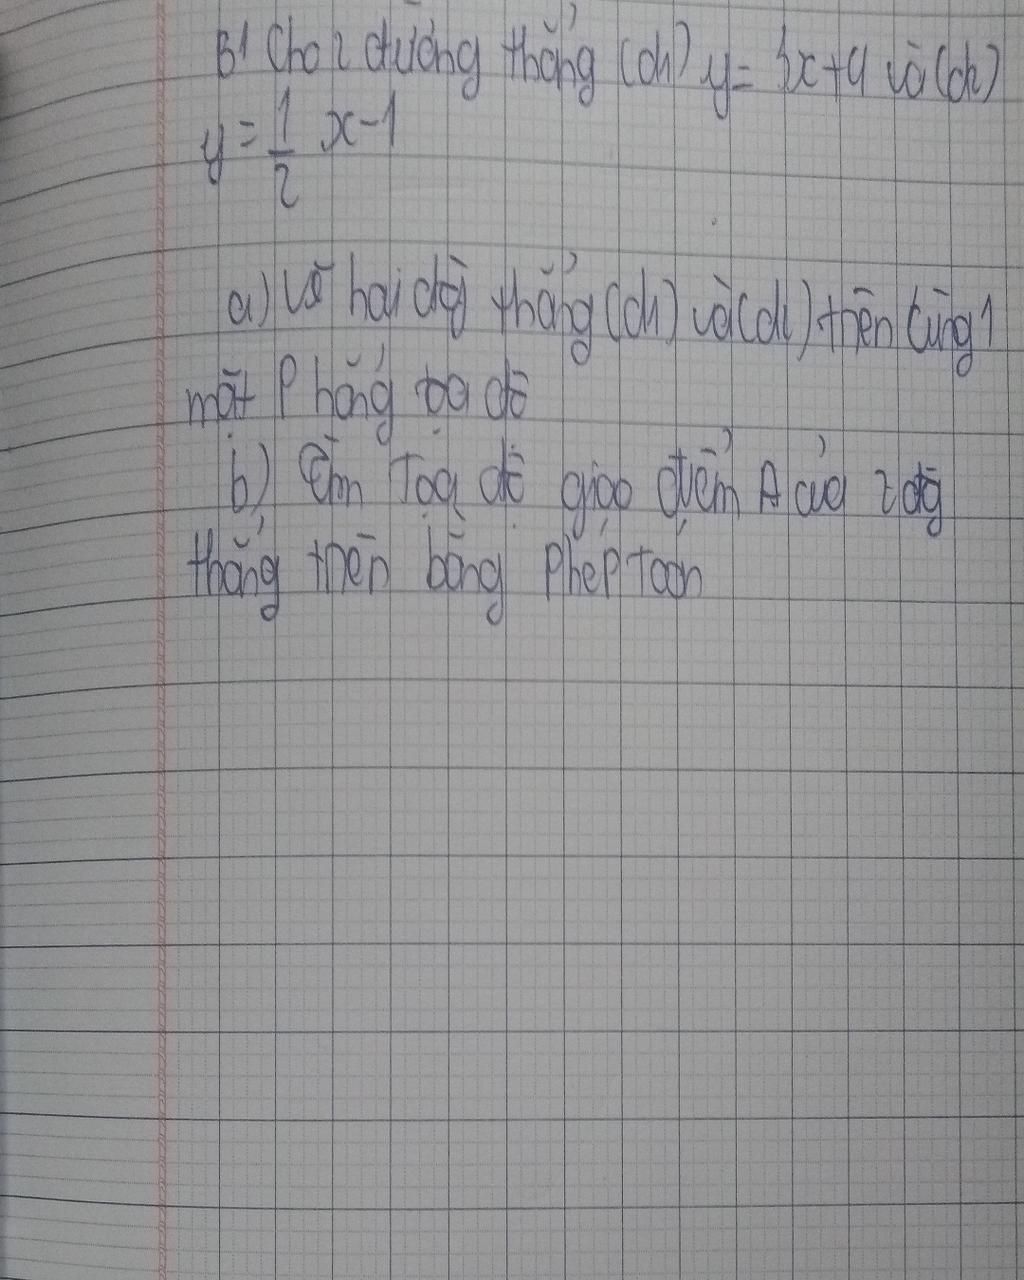 B1 Cho 2 đường thẳng (d1) y = 3x+4 và (d2)
y = 1/2 x-1
a) Vẽ hai đg thẳng (d1) và (d2) trên cùng 1
mặt phẳng tọa độ
b) Tìm Tọa độ giao điểm A của 2 đg
thẳng trên bằng phép Toán